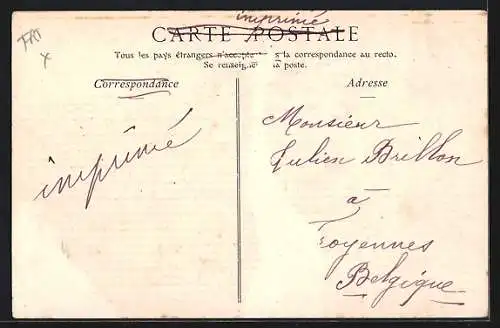 imprimé
CARTE POSTALE
Tous les pays étrangers n'accepte s la correspondance au recto.
Se renseigne la poste.
Correspondance
Adresse
imprimé
Monsieur
Julien Brillon
a
Belgique